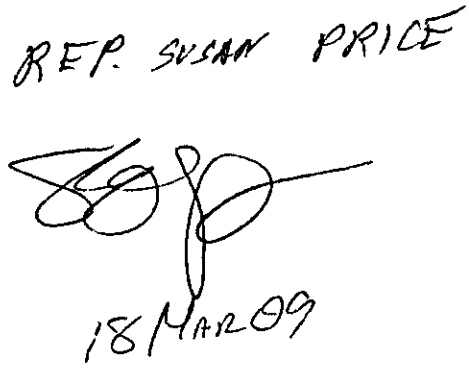 REP. SUSAN PRICE
18 MAR 09